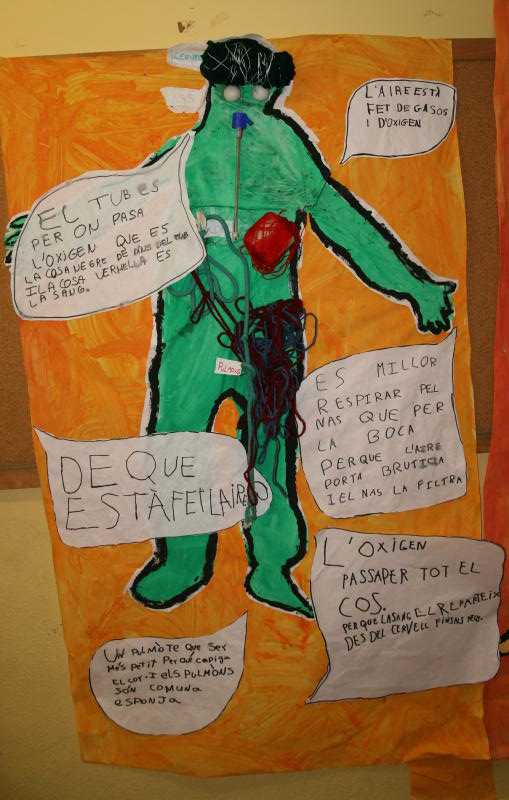 L'AIRE ESTÀ
FET DE GASOS
I D'OXIGEN
EL TUB ES
PER ON PASA
L'OXIGEN QUE ES
LA COSA NEGRE DE DINS DEL TUB
I LA COSA VERMELLA ES
LA SANG.
PULMONS
ES MILLOR
RESPIRAR PEL
NAS QUE PER
LA BOCA
PERQUE L'AIRE
PORTA BRUTICIA
I EL NAS LA FILTRA
DE QUE
ESTÀ FEI LAIRE
L'OXIGEN
PASSA PER TOT EL
COS.
PER QUE LA SANG EL REPARTEIX
DES DEL CERVELL FINS ALS
UN PULMÓ TE QUE SER
MÉS PETIT PerQUÈ CAPIGA
EL COR. I ELS PULMÒNS
SÓN COM UNA
esPONJA